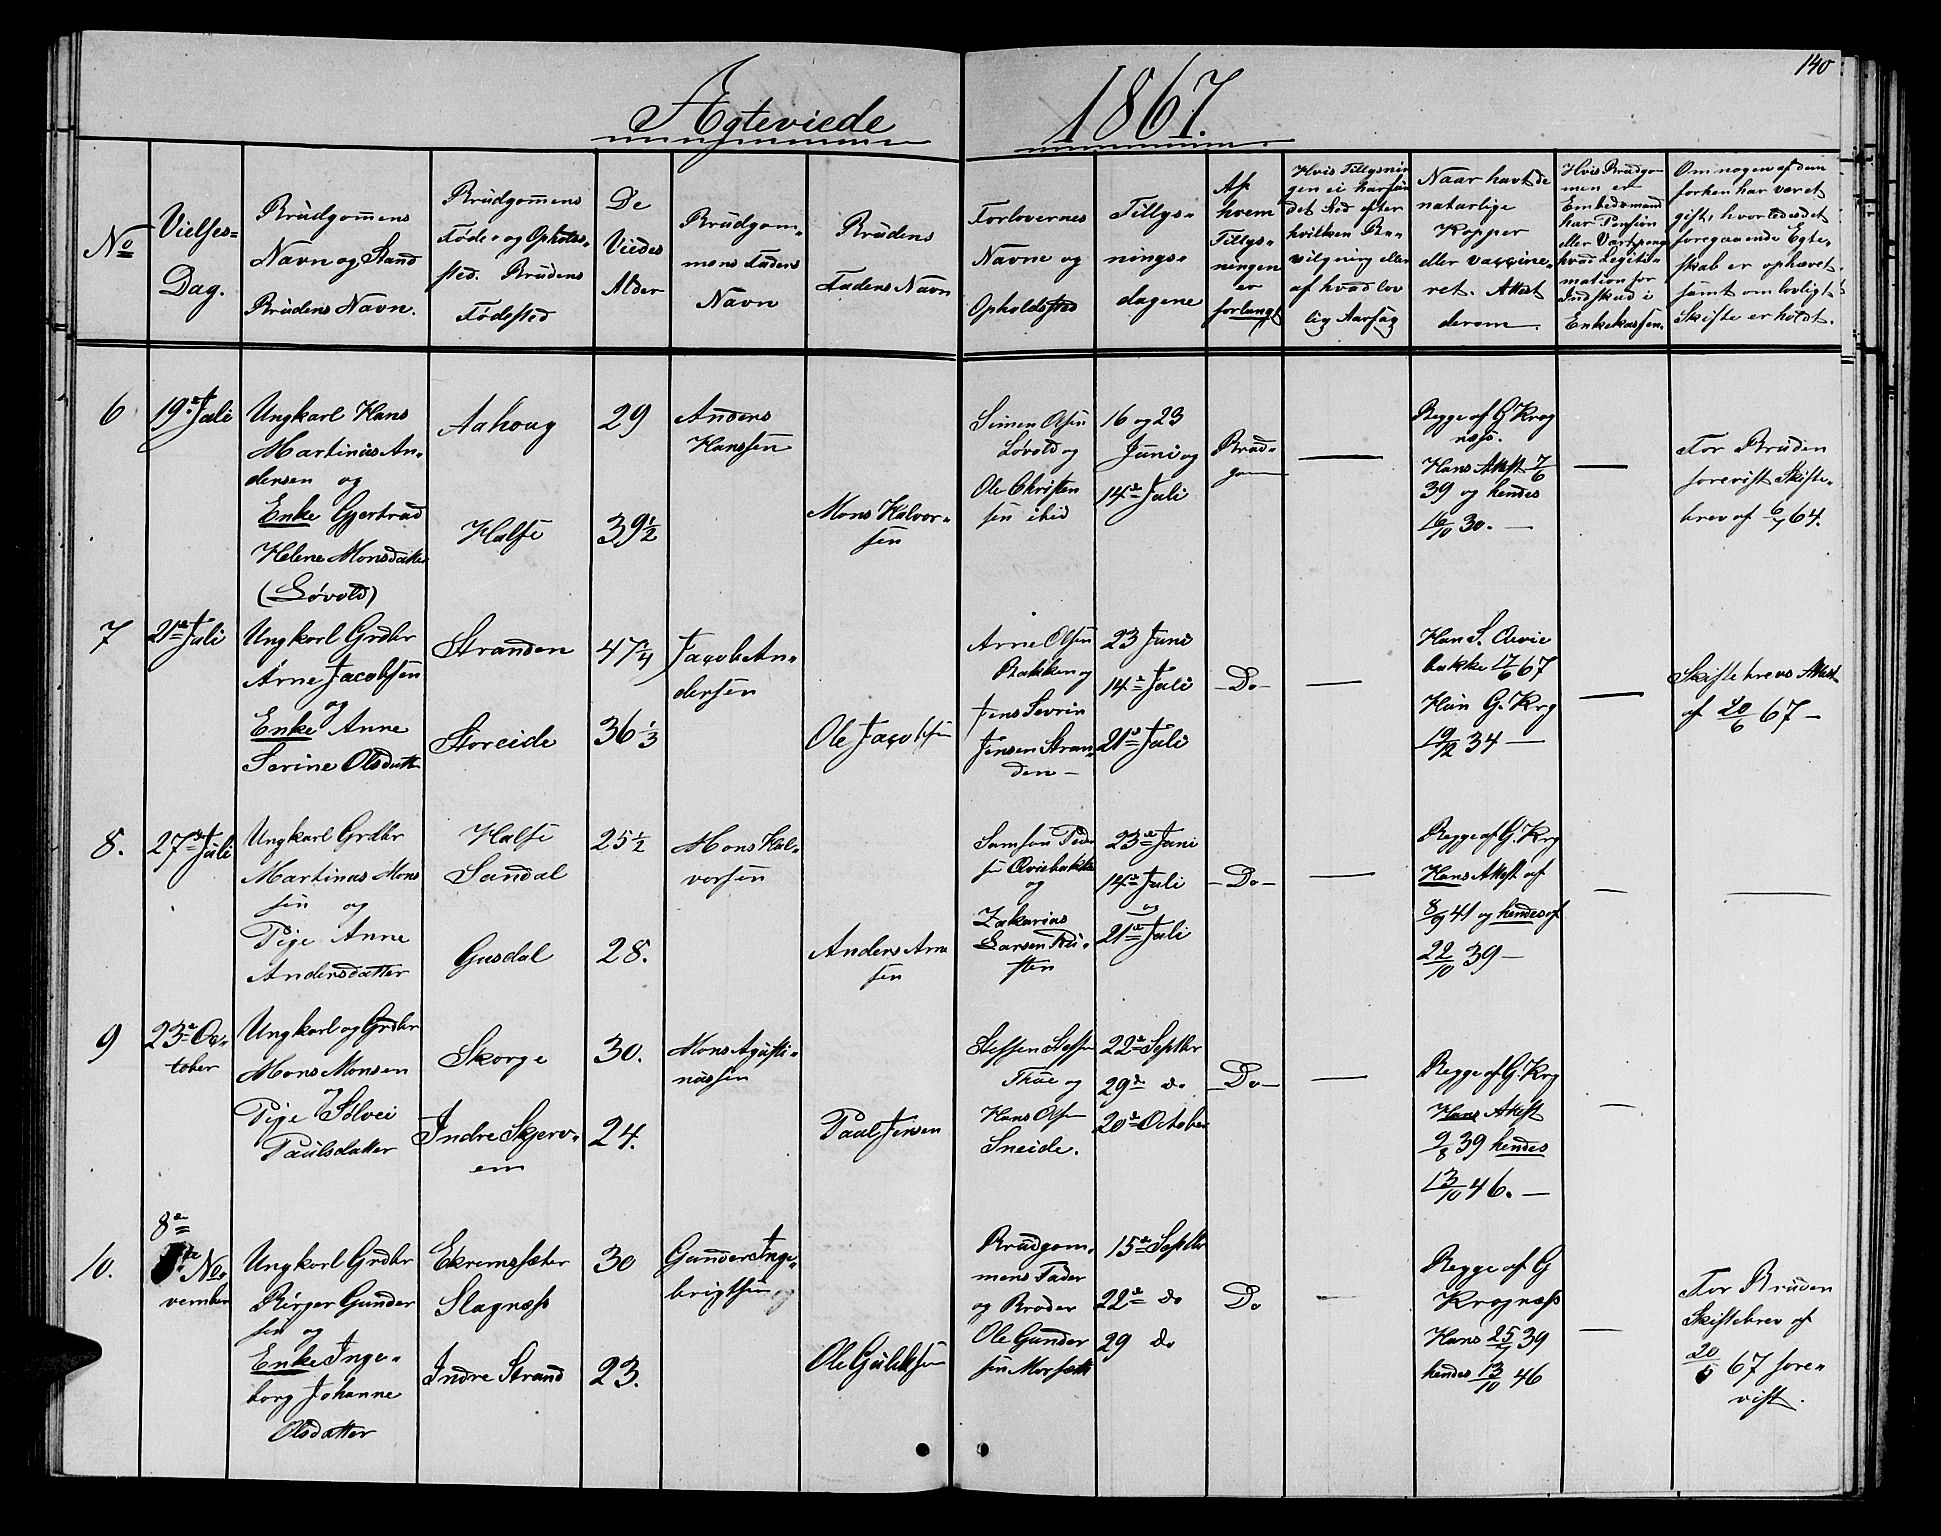 140
Ægteviede 1867.
No
Vielses-
Dag.
Brudgommens
Navn og Stand
Brudens Navn.
Brudgommens
Føde- og Opholds-
sted. Brudens
Fødested
De
Viedes
Alder
Brudgom-
mens Faders
Navn
Brudens
Faders Navn
Forlovernes
Navne og
Opholdsted
Tillys-
nings-
dagene
Af
hvem
Tillys-
ningen
er
forlangt
Hvis Tillysnin
gen ei har fun
det Sted efter
hvilken Be-
vilgning eller
af hvad lov
lig Aarsag
Naar havt de
naturlige
Kopper
eller vaccine-
ret. Attest
derom
Hvis Brudgo-
men er
Embedsmand
har Pension
eller Vartpeng
hvad Legiti-
mation for
Indskud i
Enkekassen.
Om nogen af dem
forhen har været
gift, hvorledes det
foregaaende Egte-
skab er ophævet
samt om lovligt
Skifte er holdt.
6
19de Juli
Ungkarl Hans
Martinus An-
dersen og
Enke Gjertrud
Helene Monsdatter
(Løvold)
Aahoug
Halse
29
39 1/2
Anders
Hanssen
Mons Halvor-
sen
Simen Olsen
Løvold og
Ole Christen
sen ibid
16 og 23
Juni og
14de Juli
Brud-
gom
—
Begge af G Krog
næss.
Hans Attest 7/6
39 og hendes
16/10 30. —
—
For Bruden
forevist Skifte-
brev af 6/7 64.
7
21de Juli
Ungkarl Grdbr
Arne Jacobsen
og
Enke Anne
Serine Olsdatter
Stranden
Storeide
47 1/4
36 1/3
Jacob An-
dersen
Ole Jacobsen
Arne Olsen
Bakken og
Jens Sevrin
Jensen Stran-
den —
23 Juni
14de Juli
21de Juli
— Do —
—
Han S. Qvie
bakke 17/6 67
Hun G. Krg
19/12 34 —
—
Skiftebrevs Attest
af 20/6 67 —
8.
27de Juli
Ungkarl Grdbr
Martinus Mons
sen og
Pige Anne
Andersdatter
Halse
Sandal
Gusdal
25 1/2
28.
Mons Hal-
vorsen
Anders Arne
sen
Samson Peder
sen Qviebakke
og
Zakarias
Larsen Ru-
sten
23de Juni
14de Juli
og
21de Juli
— Do —
—
Begge af G. Krg
Hans Attest af
8/9 41 og hendes af
22/10 39 —
—
—
9
23de Oc-
tober
Ungkarl og Grdbr
Mons Monsen
og
Pige Sølvei
Paulsdatter
Skorge
Indre Skjerv-
em
30.
24.
Mons Agusti-
nussen
Paul Jensen
Steffen Steffen
Thue og
Hans Olsen
Sneide.
22de Septbr
29de do
20de October
— Do —
—
Begge af G. Krg
Hans Attest
9/8 39 hendes
13/10 46. —
—
10.
8de
No-
vember
Ungkarl Grdbr
Birger Gunder
sen og
Enke Inge-
borg Johanne
Olsdatter
Ekremsæter
Slagnæss
Indre Strand
30
23.
Gunder Inge-
brigtsen
Ole Gulliksen
Brudgom-
mens Fader
og Broder
Ole Gunder
sen Morsætt
15de Septbr
22de do
29 do
Do
—
Begge af G
Krognæss
Hans 25/7 39
hendes 13/10 46
—
For Bruden
Skiftebrev af
20/5 67 fore-
vist.